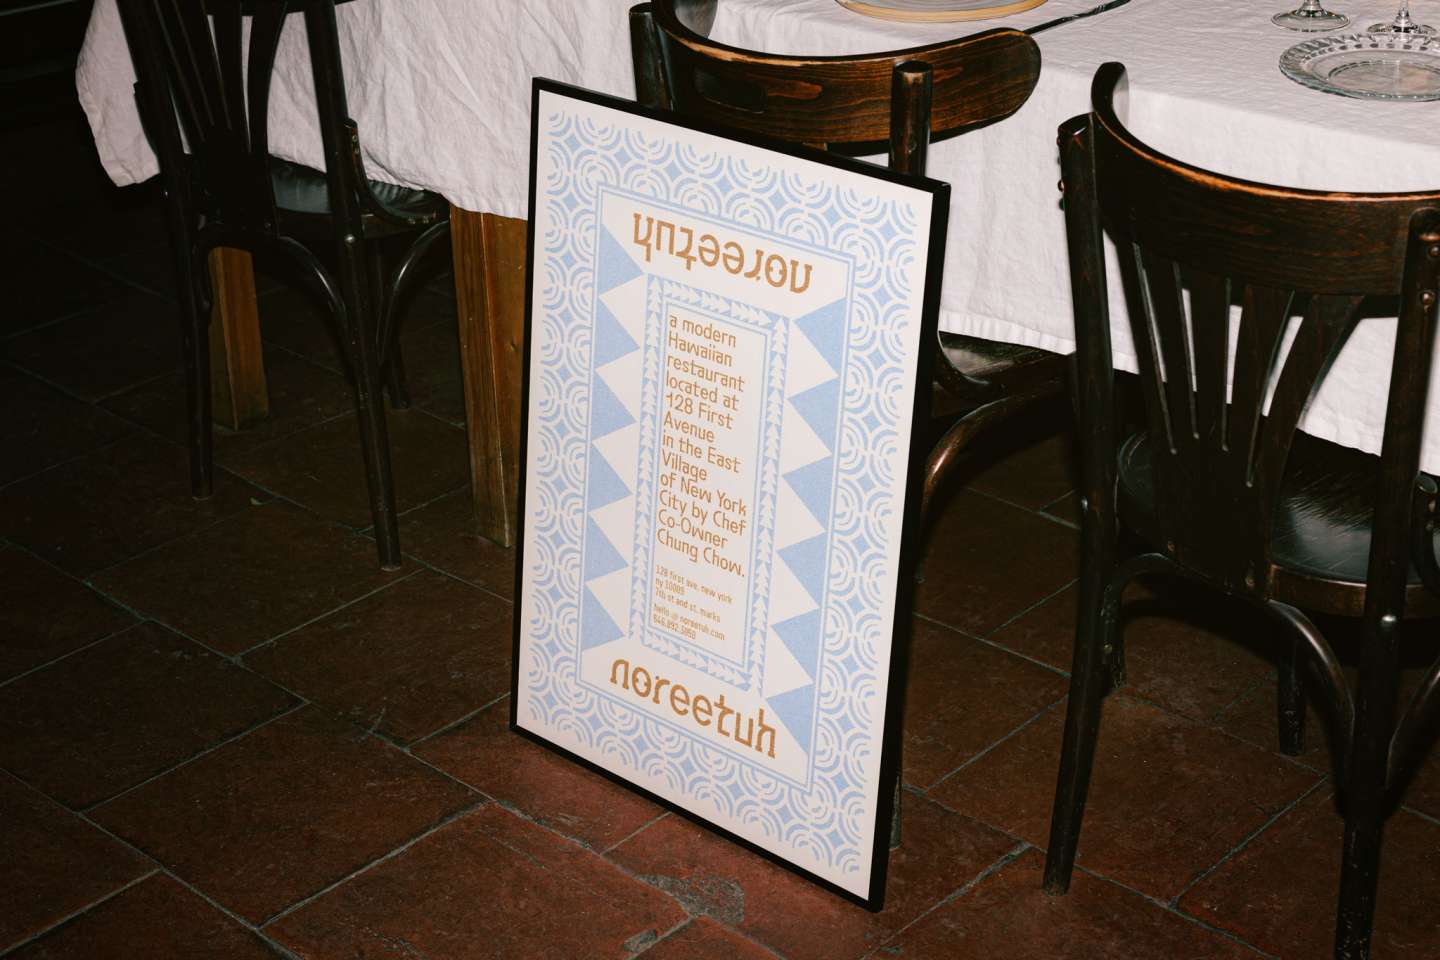 noreetuh
a modern
Hawaiian
restaurant
located at
128 First
Avenue
in the East
Village
of New York
City by Chef
Co-Owner
Chung Chow.
128 first ave. new york
ny 10009
7th st and st. marks
hello @ noreetuh.com
646.892.3050
noreetuh